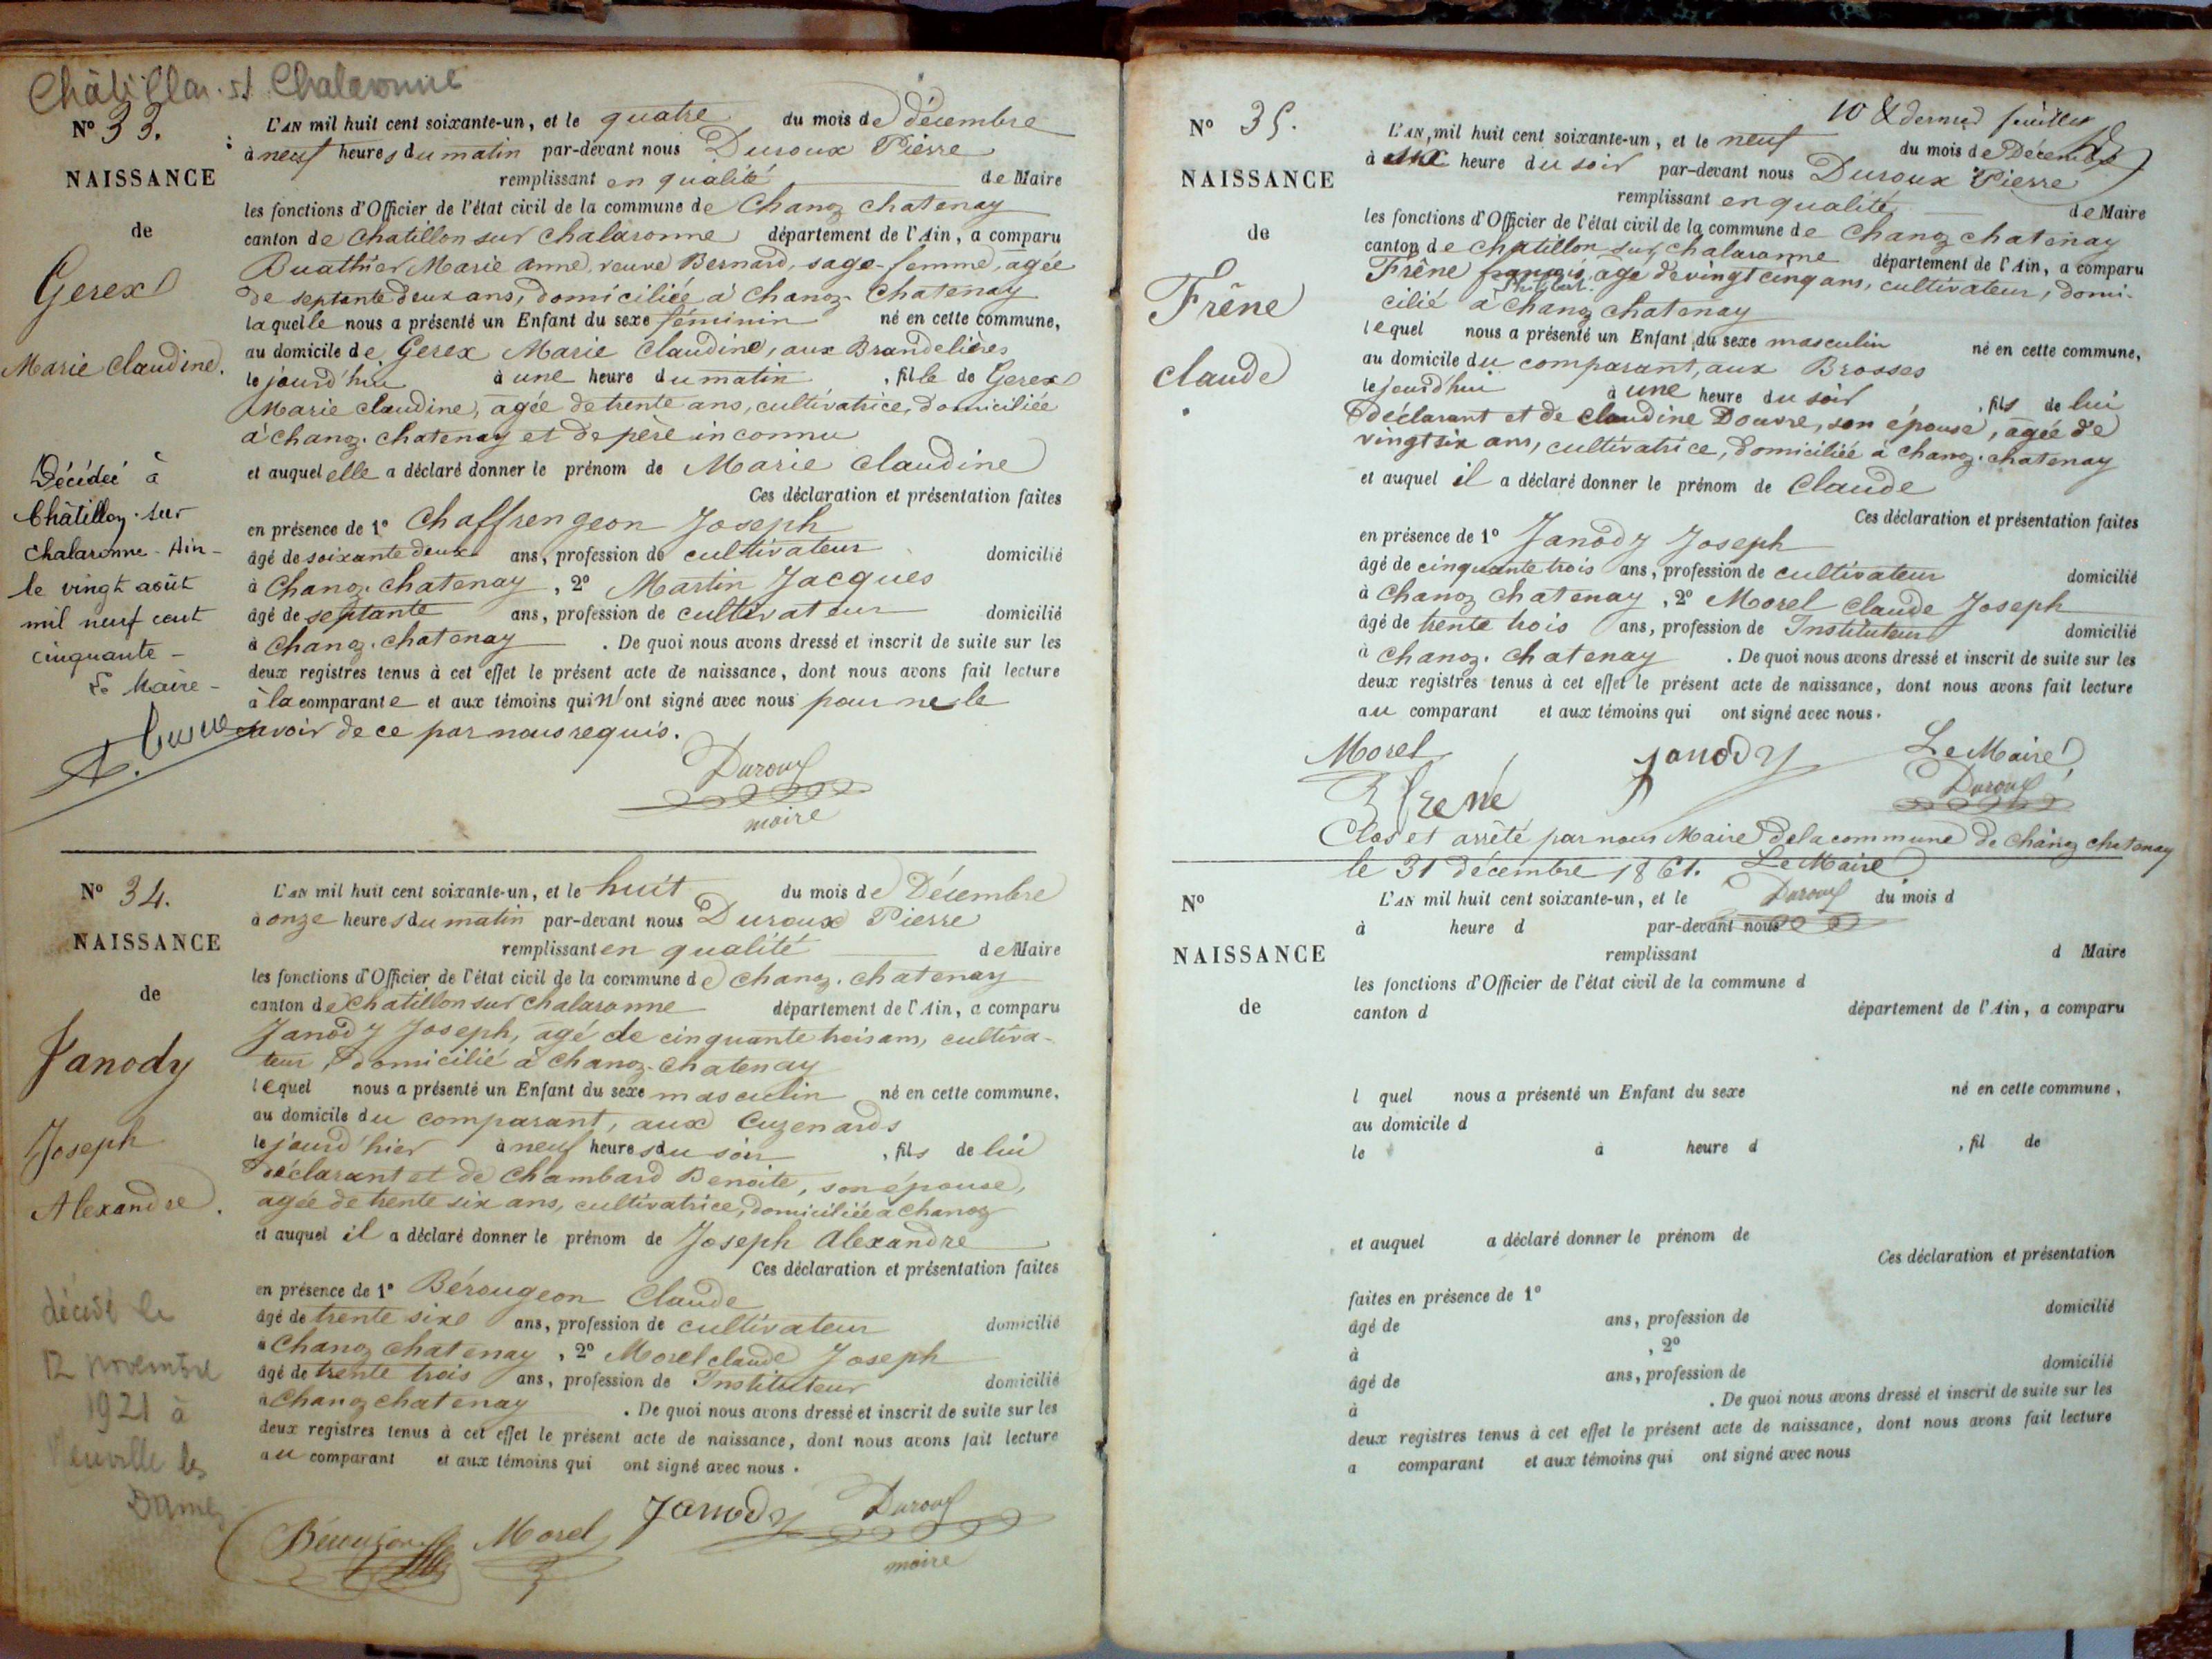 Châtillon s/ Chalaronne
N° 33.
NAISSANCE
de
Gerex
Marie Claudine.
Décédée à
Châtillon-sur
Chalaronne - Ain -
le vingt août
mil neuf cent
cinquante -
Le Maire -
L'AN mil huit cent soixante-un, et le quatre du mois de décembre
à neuf heures du matin par-devant nous Duroux Pierre
remplissant en qualité de Maire
les fonctions d'Officier de l'état civil de la commune de Chanoz chatenay
canton de Chatillon sur Chalaronne département de l'Ain, a comparu
Buathier Marie Anne, veuve Bernard, sage-femme, agée
de septante deux ans, domiciliée à Chanoz-Chatenay
laquelle nous a présenté un Enfant du sexe féminin né en cette commune,
au domicile de Gerex Marie Claudine, aux Brandelières
le jourd'hui à une heure du matin, fille de Gerex
Marie claudine, agée de trente ans, cultivatrice, domiciliée
à chanoz. chatenay et de père inconnu
et auquel elle a déclaré donner le prénom de Marie Claudine
Ces déclaration et présentation faites
en présence de 1° Chaffrengeon Joseph
âgé de soixante deux ans, profession de cultivateur domicilié
à Chanoz. chatenay, 2° Martin Jacques
âgé de septante ans, profession de cultivateur domicilié
à Chanoz. chatenay. De quoi nous avons dressé et inscrit de suite sur les
deux registres tenus à cet effet le présent acte de naissance, dont nous avons fait lecture
à la comparante et aux témoins qui n'ont signé avec nous pour ne le
savoir de ce par nous requis.
Duroux
maire
N° 34.
NAISSANCE
de
Janody
Joseph
Alexandre.
décédé le
12 novembre
1921 à
Neuville les
Dames
L'AN mil huit cent soixante-un, et le huit du mois de Décembre
à onze heures du matin par-devant nous Duroux Pierre
remplissant en qualité de Maire
les fonctions d'Officier de l'état civil de la commune de Chanoz. chatenay
canton de Chatillon sur Chalaronne département de l'Ain, a comparu
Janody Joseph, agé de cinquante trois ans, cultiva-
teur, domicilié à Chanoz-Chatenay
lequel nous a présenté un Enfant du sexe masculin né en cette commune,
au domicile du comparant, aux Cuzenards
le jourd'hier à neuf heures du soir, fils de lui
déclarant et de Chambard Benoite, son épouse,
agée de trente six ans, cultivatrice, domiciliée à Chanoz
et auquel il a déclaré donner le prénom de Joseph Alexandre
Ces déclaration et présentation faites
en présence de 1° Bérougeon Claude
âgé de trente six ans, profession de cultivateur domicilié
à Chanoz chatenay, 2° Morel claude Joseph
âgé de trente trois ans, profession de Instituteur domicilié
à Chanoz chatenay. De quoi nous avons dressé et inscrit de suite sur les
deux registres tenus à cet effet le présent acte de naissance, dont nous avons fait lecture
au comparant et aux témoins qui ont signé avec nous.
Bérougeon Morel Janody Duroux
maire
10 & dernier feuillet
N° 35.
NAISSANCE
de
Frêne
claude
L'AN mil huit cent soixante-un, et le neuf du mois de Décembre
à six heure du soir par-devant nous Duroux Pierre
remplissant en qualité de Maire
les fonctions d'Officier de l'état civil de la commune de Chanoz chatenay
canton de Chatillon sur chalaronne département de l'Ain, a comparu
Frêne françois, age de vingt cinq ans, cultivateur, domi-
Philibert
cilié à Chanoz Chatenay
lequel nous a présenté un Enfant du sexe masculin né en cette commune,
au domicile du comparant, aux Brosses
le jourd'hui à une heure du soir, fils de lui
déclarant et de Claudine Douvre, son épouse, agée de
vingt six ans, cultivatrice, domiciliée à Chanoz. chatenay
et auquel il a déclaré donner le prénom de Claude
Ces déclaration et présentation faites
en présence de 1° Janody Joseph
âgé de cinquante trois ans, profession de cultivateur domicilié
à Chanoz chatenay, 2° Morel Claude Joseph
âgé de trente trois ans, profession de Instituteur domicilié
à Chanoz. Chatenay. De quoi nous avons dressé et inscrit de suite sur les
deux registres tenus à cet effet le présent acte de naissance, dont nous avons fait lecture
au comparant et aux témoins qui ont signé avec nous.
Morel Janody Le Maire
Frene Duroux
Clos et arrêté par nous Maire de la commune de Chanoz chatenay
le 31 décembre 1861. Le Maire
Duroux
N°
NAISSANCE
de
L'AN mil huit cent soixante-un, et le du mois d
à heure d par-devant nous
remplissant d Maire
les fonctions d'Officier de l'état civil de la commune d
canton d département de l'Ain, a comparu
l quel nous a présenté un Enfant du sexe né en cette commune,
au domicile d
le à heure d, fil de
et auquel a déclaré donner le prénom de
Ces déclaration et présentation
faites en présence de 1°
âgé de ans, profession de domicilié
à, 2°
âgé de ans, profession de domicilié
à. De quoi nous avons dressé et inscrit de suite sur les
deux registres tenus à cet effet le présent acte de naissance, dont nous avons fait lecture
a comparant et aux témoins qui ont signé avec nous